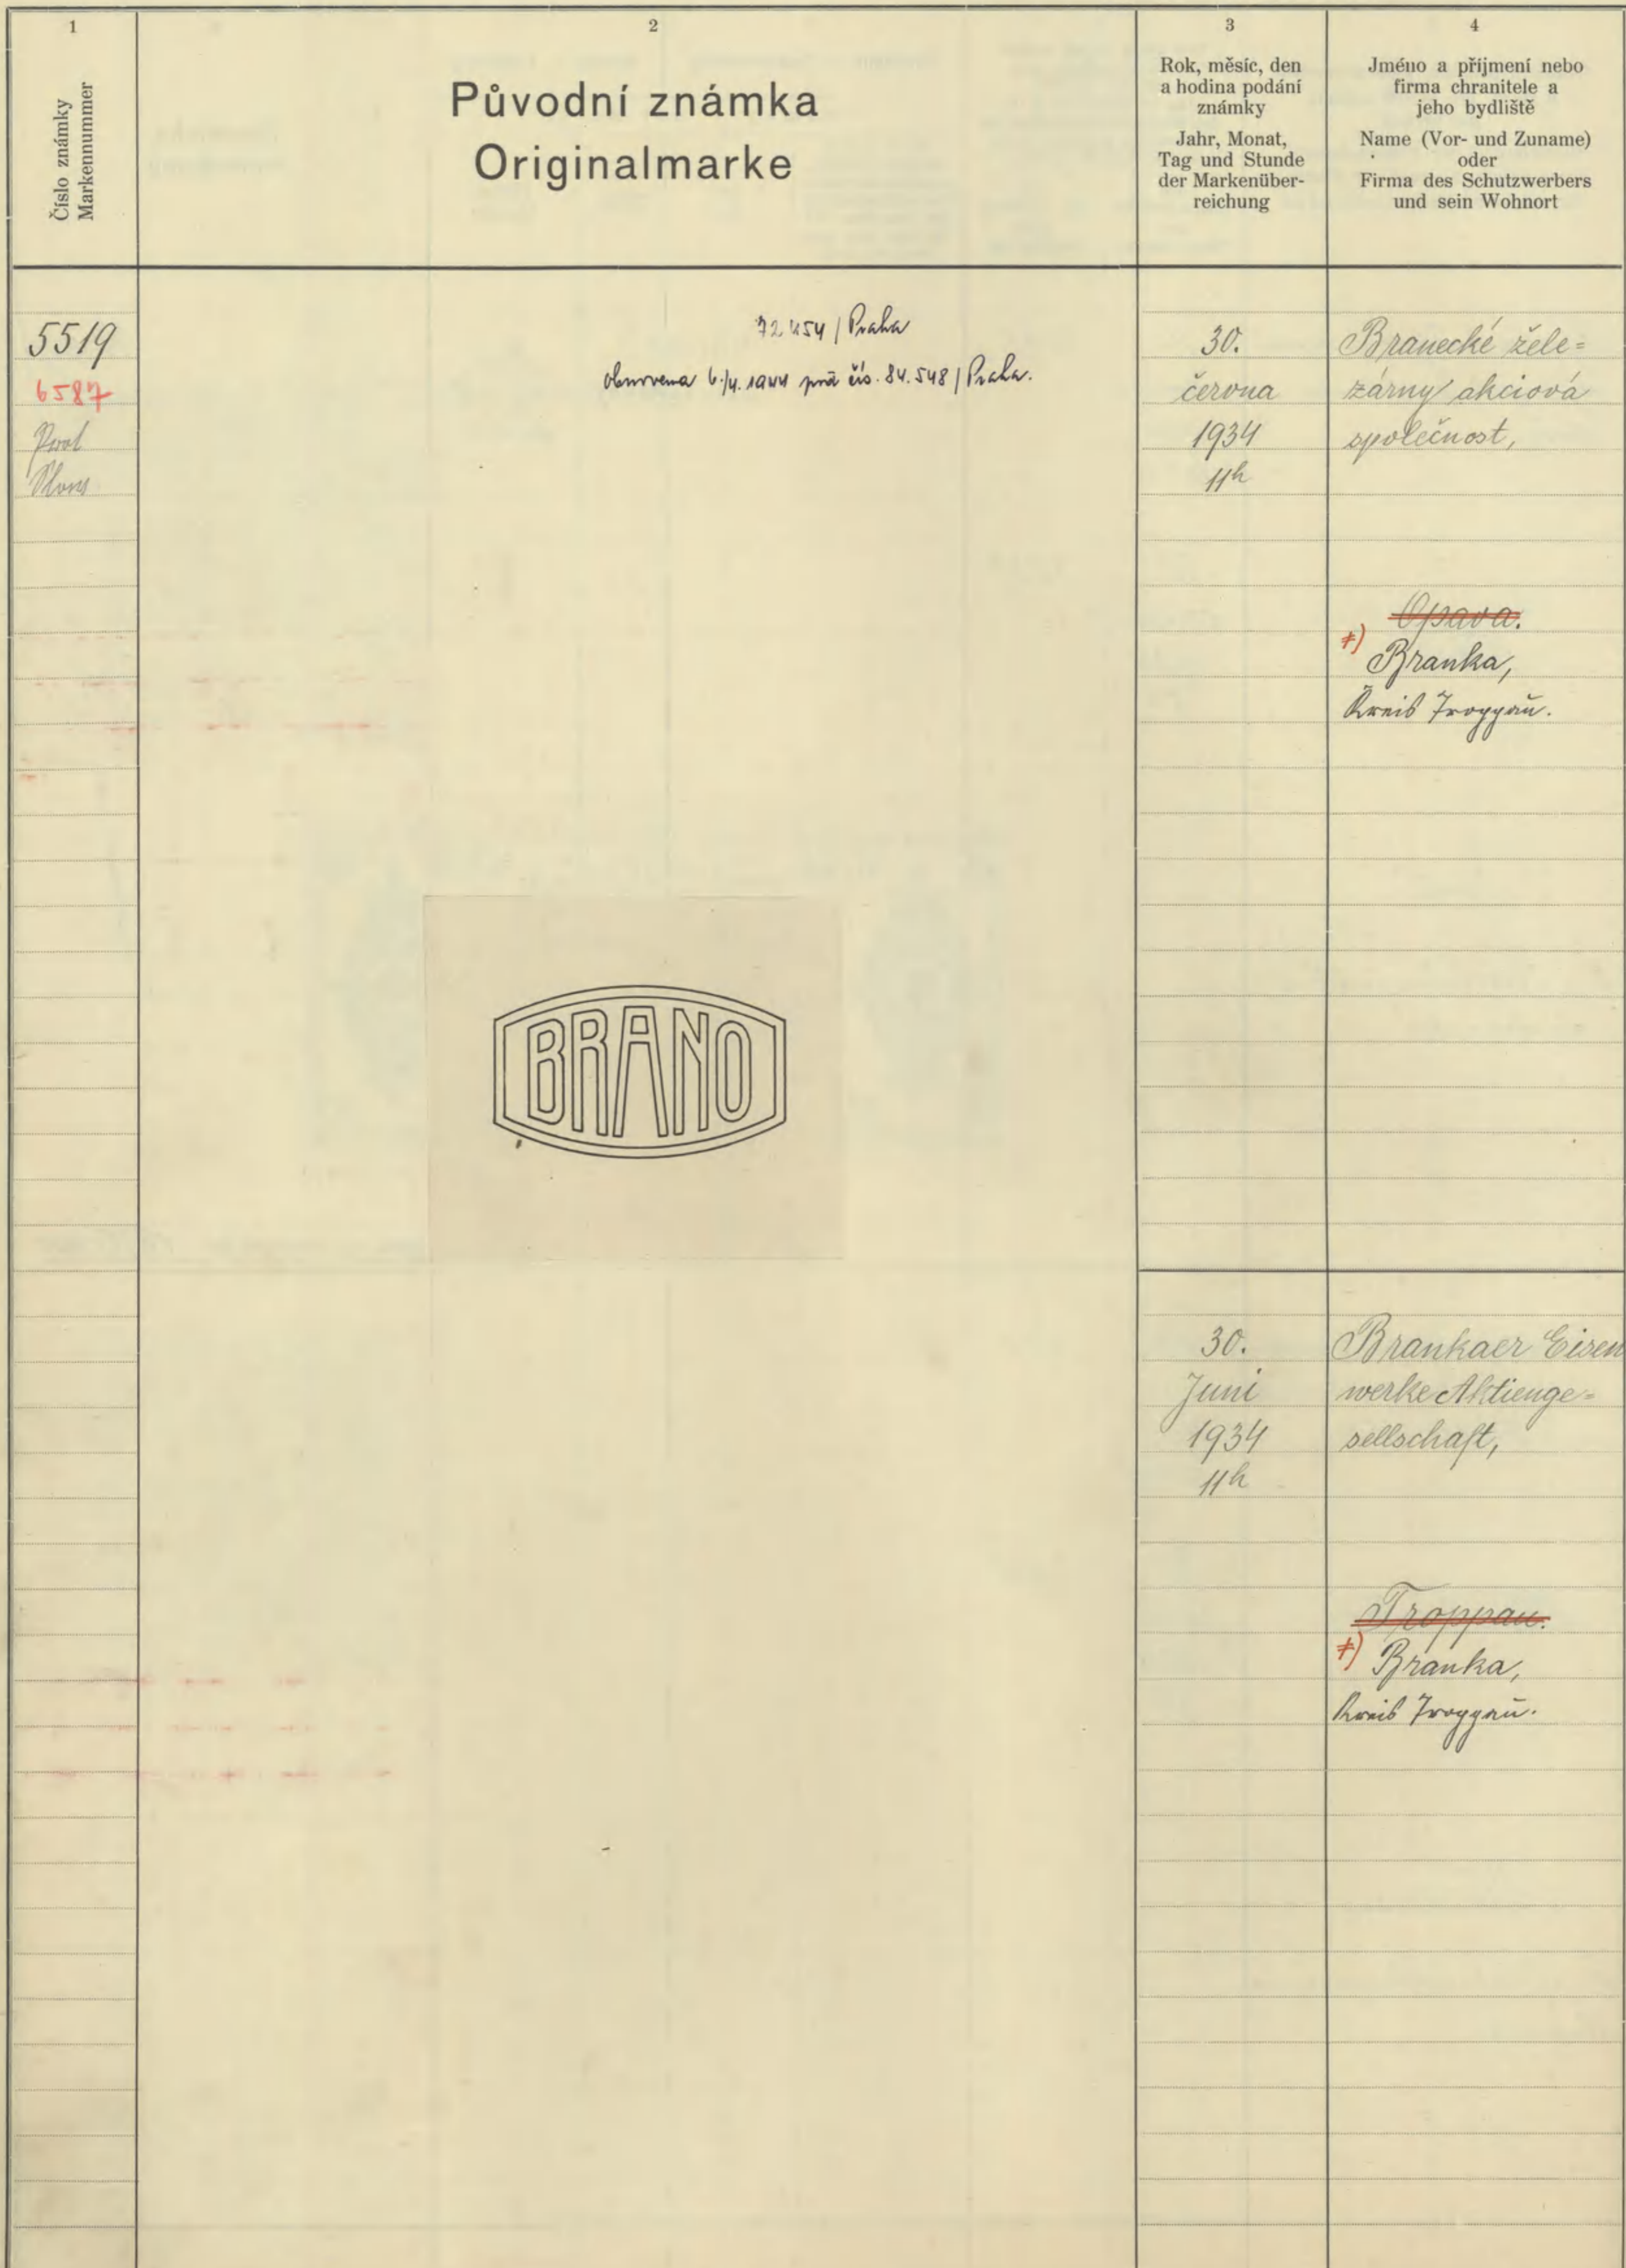 1
Číslo známky
Markennummer
2
Původní známka
Originalmarke
3
Rok, měsíc, den
a hodina podání
známky
Jahr, Monat,
Tag und Stunde
der Markenüber-
reichung
4
Jméno a příjmení nebo
firma chranitele a
jeho bydliště
Name (Vor- und Zuname)
oder
Firma des Schutzwerbers
und sein Wohnort
5519
6587
72454 / Praha
obnovena 6./4. 1944 pod čís. 84.548 / Praha.
30.
června
1934
11h
Branecké žele=
zárny akciová
společnost,
Opava.
Branka,
Kreis Troppau.
BRANO
30.
Juni
1934
11h
Brankaer Eisen
werke Aktienge=
sellschaft,
Troppau.
Branka,
Kreis Troppau.